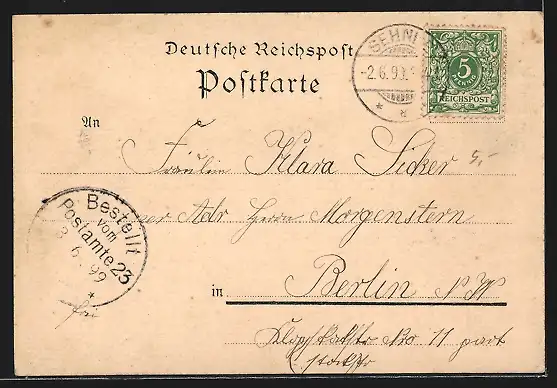 Deutsche Reichspost
Postkarte
SEHNI
-2.6.99.
5
REICHSPOST
An
Fräulein Klara Sicker
5,-
Bestellt
vom
Postamte 23
3 6 99
Adr Herrn Morgenstern
in Berlin N.W
No 11 part